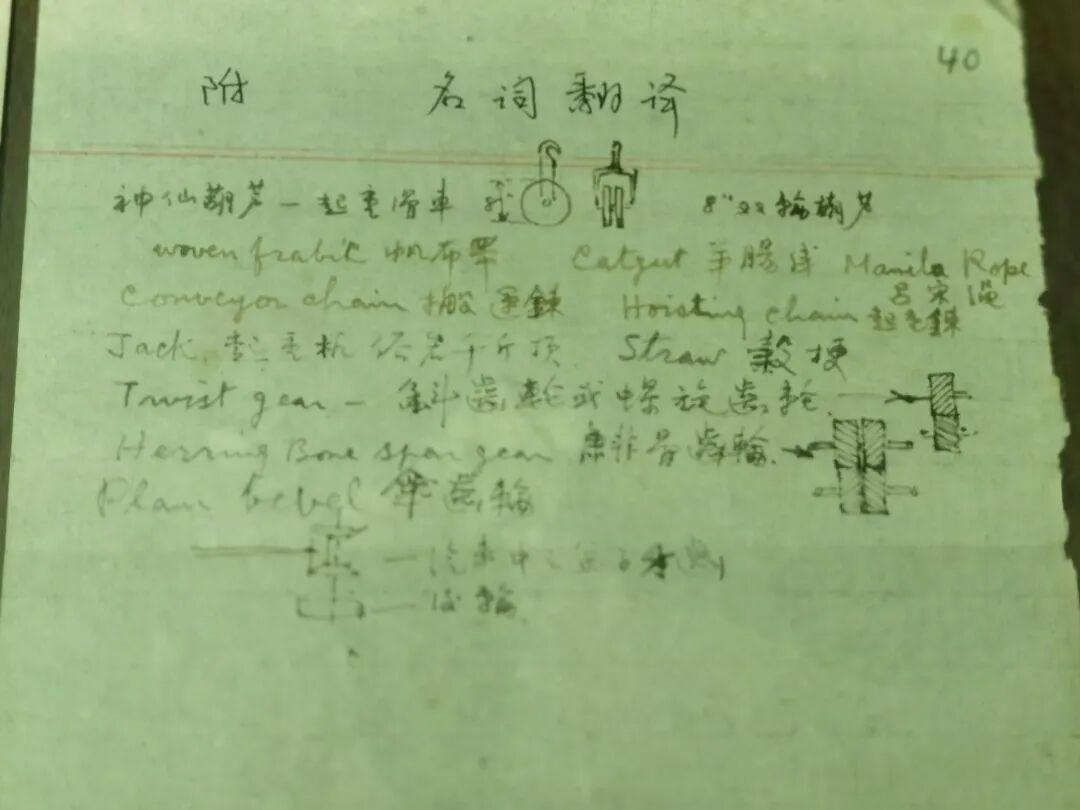 40
附 名词翻译
神仙葫芦－起重滑車 8" 8"双輪葫芦
woven frabic 帆布單 Catgut 羊腸线 Manila Rope
呂宋绳
Conveyor chain 搬運鍊 Hoisting chain 起重鍊
Jack 起重机 俗名千斤顶 Straw 穀梗
Twist gear － 斜齒輪或螺旋齒輪
Herring Bone spur gear 魚非骨齒輪
Plain bevel 傘齒輪
－汽車中之
－ 輪